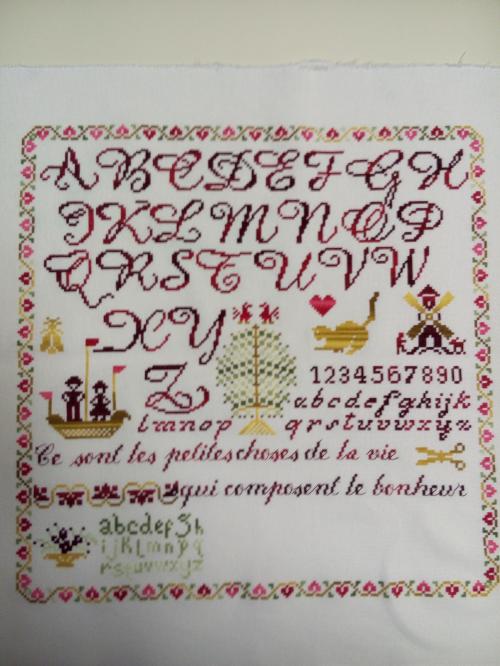 A B C D E F G H
I K L M N O P
Q R S T U V W
X Y
Z
1234567890
abcdefghijk
lmnop qrstuvwxyz
Ce sont les petites choses de la vie
qui composent le bonheur
abcdefgh
ijklmnopq
rstuvwxyz